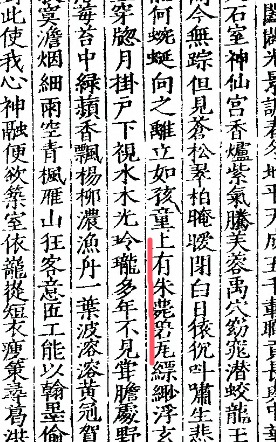 石室神仙宮香爐紫氣騰芙蓉禹穴窈窕潛蛟龍王
今無踪但見蒼松翠柏晻曖閉白日猿叫嘯生悲
何蜿蜒向之離立如孩童上有朱甍碧瓦縹緲浮玄
穿牕月掛戶下視水木光玲瓏多年不見野
莓苔中緑蘋香飄楊柳濃漁舟一葉波溶溶黃冠賀
澹烟細雨空青楓雁山狂客意匠工能以翰墨偷
此使我心神融便欲築室依短衣瘦策尋葛洪